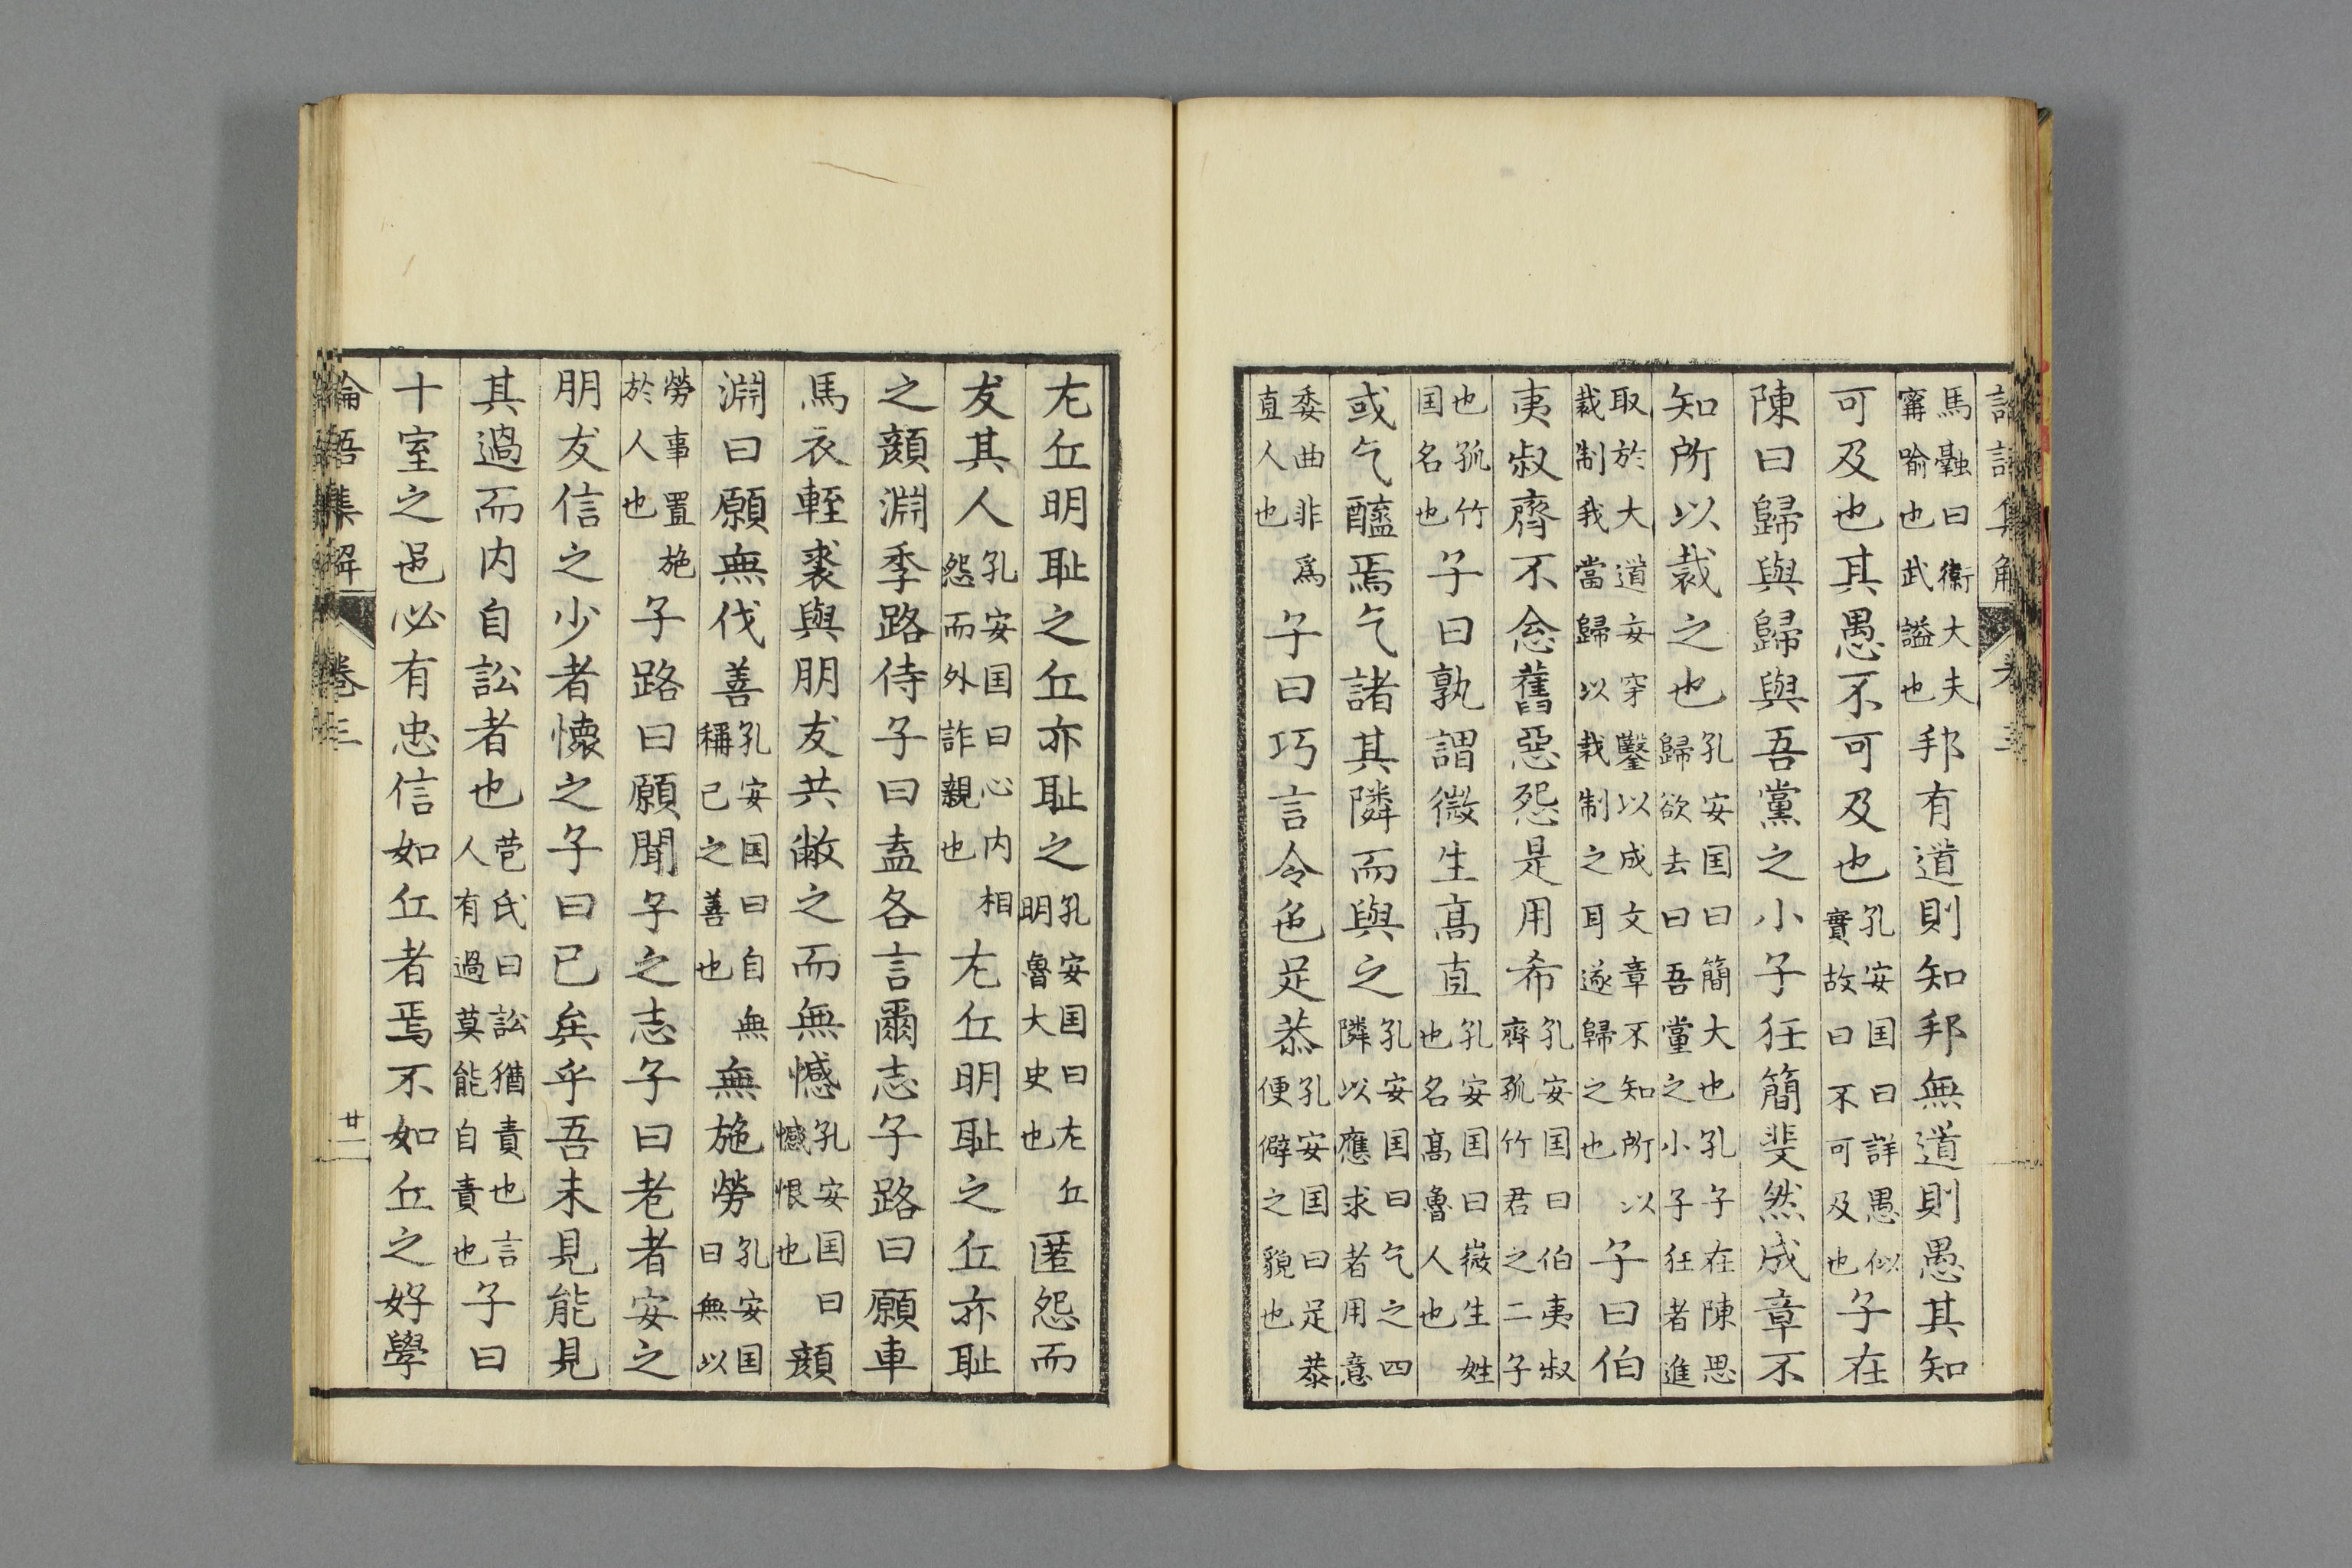 馬融曰衞大夫
寗喻也武謚也
邦有道則知邦無道則愚其知
可及也其愚不可及也
孔安囯曰詳愚似
實故曰不可及也
子在
陳曰歸與歸與吾黨之小子狂簡斐然成章不
知所以裁之也
孔安囯曰簡大也孔子在陳思
歸欲去曰吾黨之小子狂者進
取於大道妄穿鑿以成文章不知所以
裁制我當歸以裁制之耳遂歸之也
子曰伯
夷叔齊不念舊惡怨是用希
孔安囯曰伯夷叔
齊孤竹君之二子
也孤竹
囯名也
子曰孰謂微生髙直
孔安囯曰微生姓
也名髙魯人也
或乞醯焉乞諸其隣而與之
孔安囯曰乞之四
隣以應求者用意
委曲非爲
直人也
子曰巧言令色足恭
孔安囯曰足恭
便僻之貌也
左丘明耻之丘亦耻之
孔安囯曰左丘
明魯大史也
匿怨而
友其人
孔安囯曰心内相
怨而外詐親也
左丘明耻之丘亦耻
之顔淵季路侍子曰盍各言爾志子路曰願車
馬衣輕裘與朋友共敝之而無憾
孔安囯曰
憾恨也
顔
淵曰願無伐善
孔安囯曰自無
稱己之善也
無施勞
孔安囯
曰無以
勞事置施
於人也
子路曰願聞子之志子曰老者安之
朋友信之少者懷之子曰已矣乎吾未見能見
其過而内自訟者也
苞氏曰訟猶責也言
人有過莫能自責也
子曰
十室之邑必有忠信如丘者焉不如丘之好學
論語集解
卷三
廿一